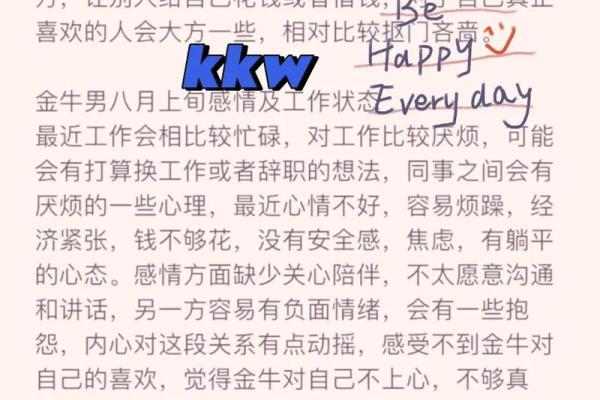 喜欢的人会大方一些，相对比较抠门吝啬。
Be
Happy
Every day
kkw
金牛男八月上旬感情及工作状态
最近工作会相比较忙碌，对工作比较厌烦，可能
会有打算换工作或者辞职的想法，同事之间会有
厌烦的一些心理，最近心情不好，容易烦躁，经
济紧张，钱不够花，没有安全感，焦虑，有躺平
的心态。感情方面缺少关心陪伴，不太愿意沟通
和讲话，另一方容易有负面情绪，会有一些抱
怨，内心对这段关系有点动摇，感受不到金牛对
自己的喜欢，觉得金牛对自己不上心，不够真